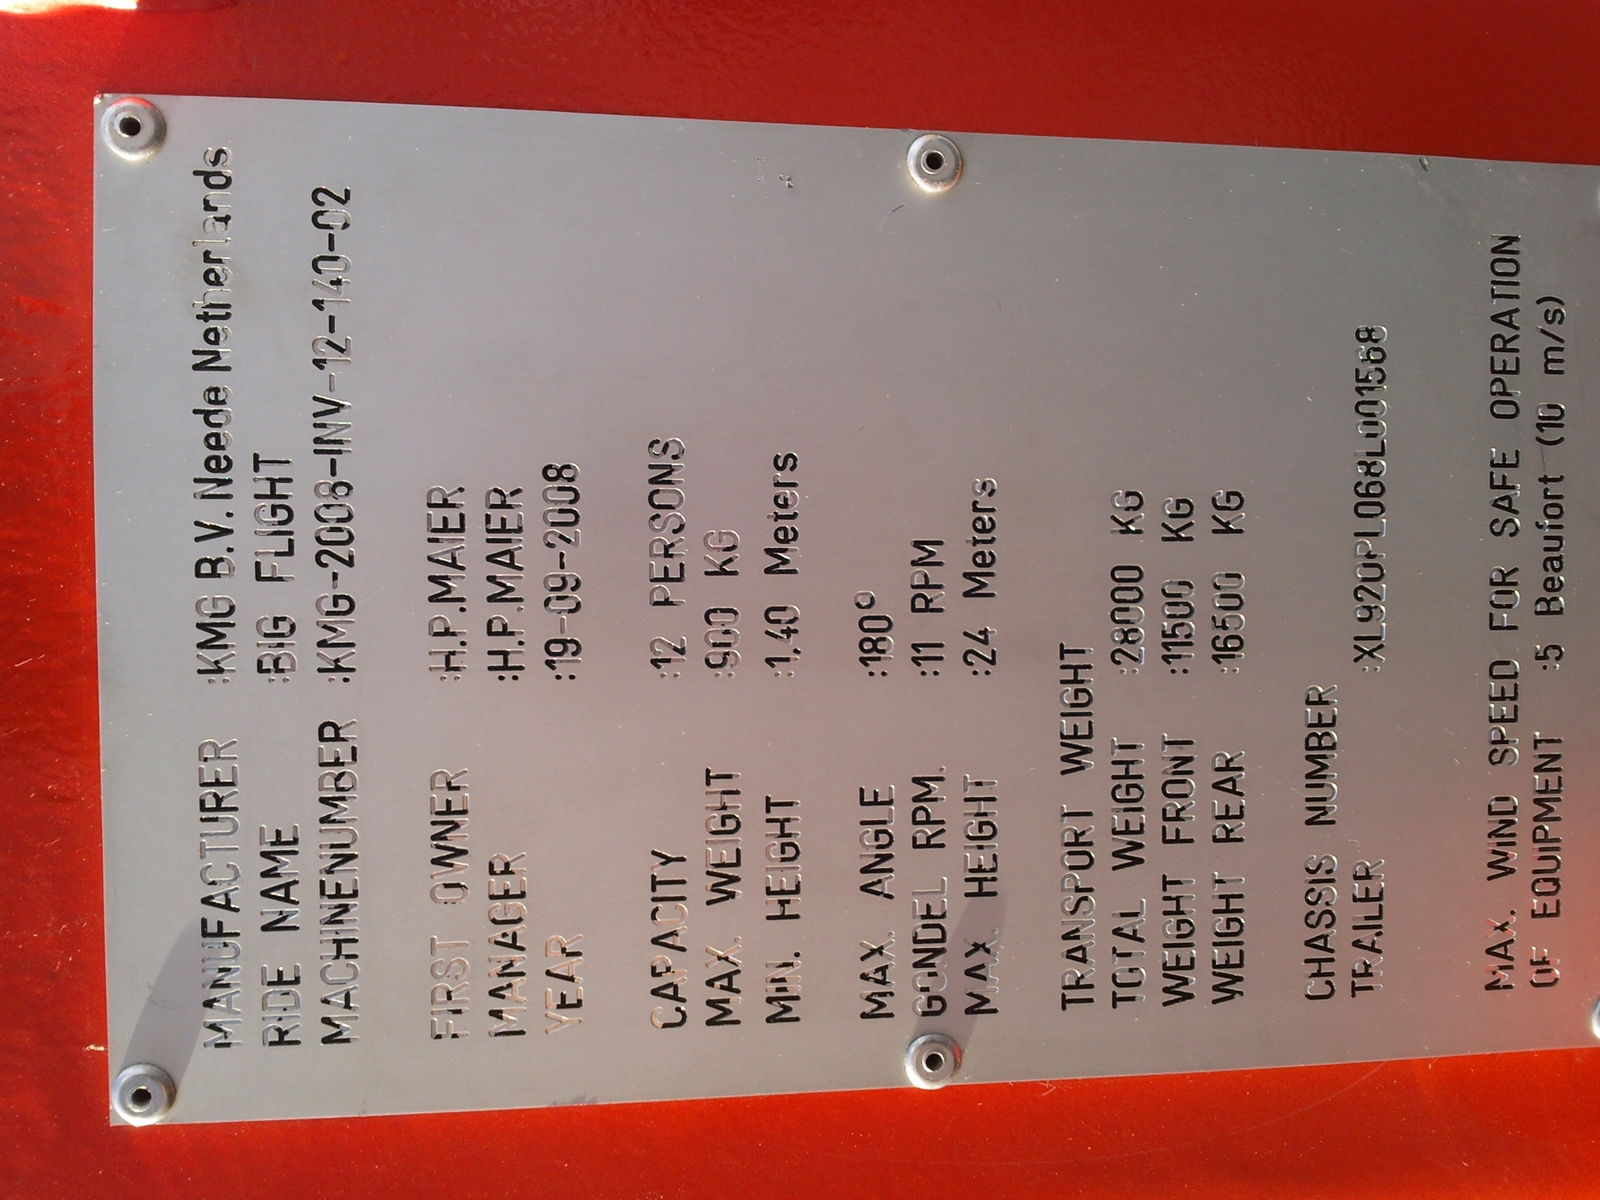 MANUFACTURER :KMG B.V. Neede Netherlands
RIDE NAME :BIG FLIGHT
MACHINENUMBER :KMG-2008-INV-12-140-02
FIRST OWNER :H.P.MAIER
MANAGER :H.P.MAIER
YEAR :19-09-2008
CAPACITY :12 PERSONS
MAX. WEIGHT :900 KG
MIN. HEIGHT :1,40 Meters
MAX. ANGLE :180°
GONDEL RPM. :11 RPM
MAX HEIGHT :24 Meters
TRANSPORT WEIGHT
TOTAL WEIGHT :28000 KG
WEIGHT FRONT :11500 KG
WEIGHT REAR :16500 KG
CHASSIS NUMBER
TRAILER :XL920PL068L001568
MAX. WIND SPEED FOR SAFE OPERATION
OF EQUIPMENT :5 Beaufort (10 m/s)